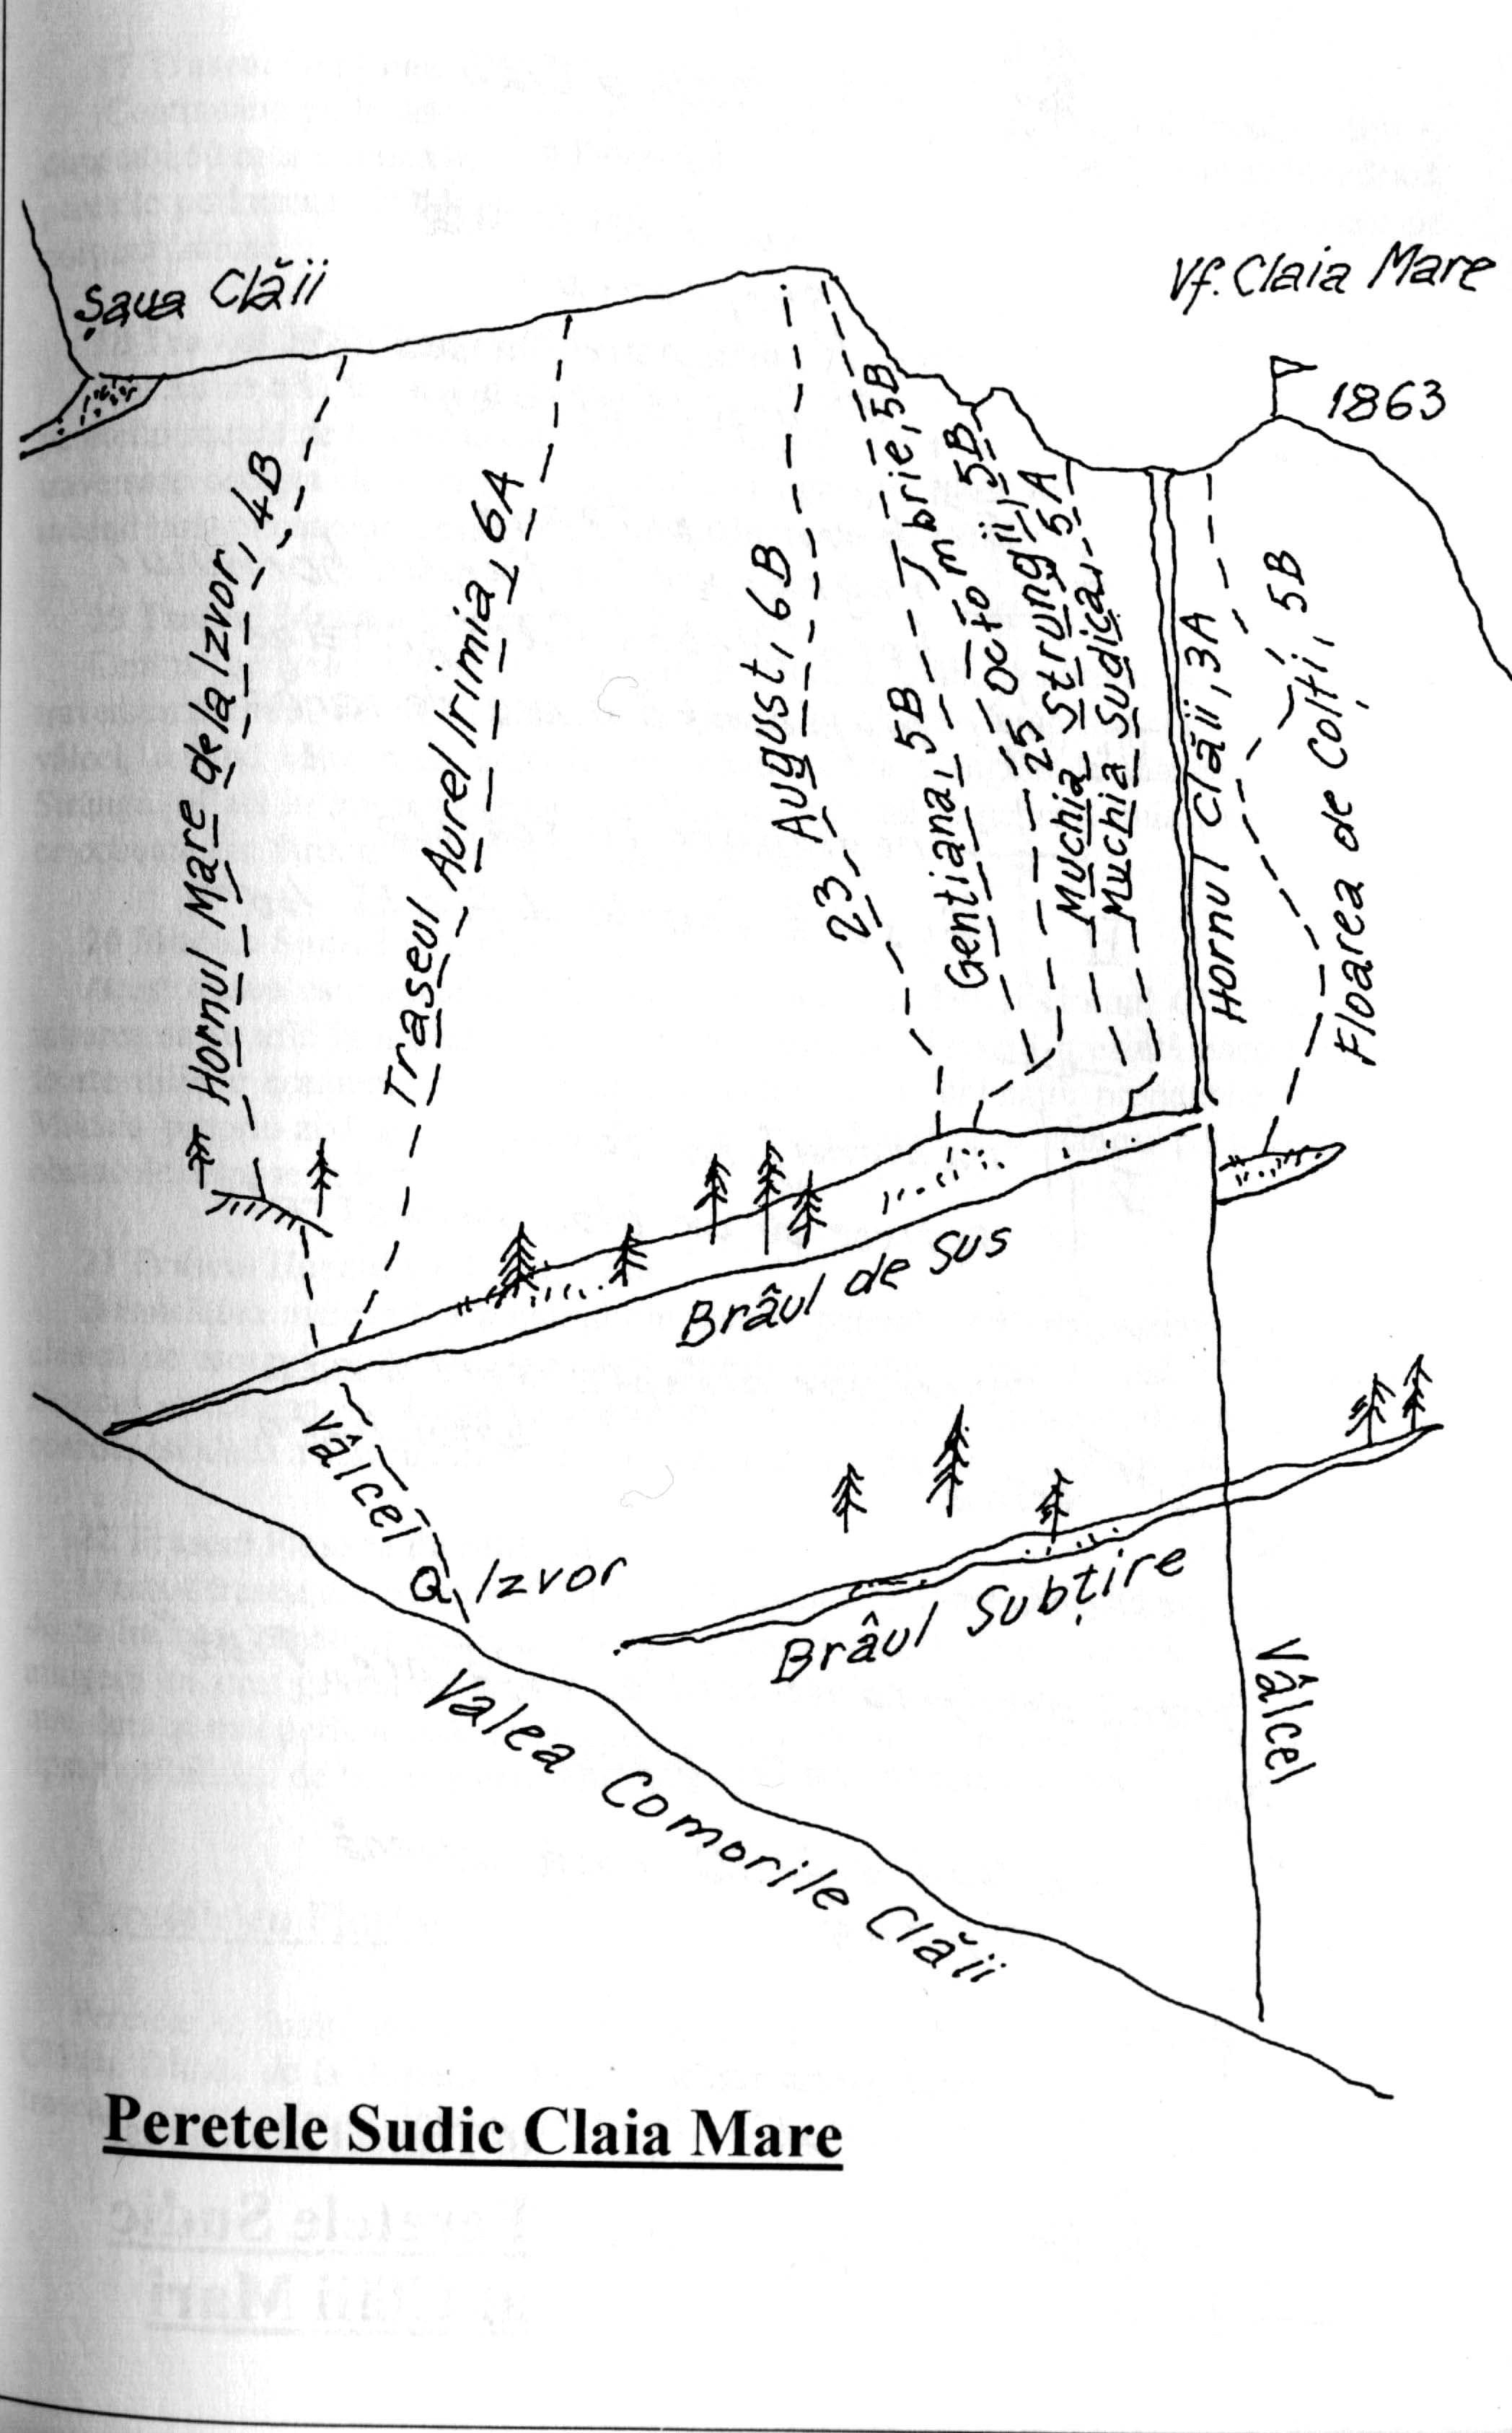 Șaua Clăii
Vf. Claia Mare
1863
Hornul Mare de la Izvor, 4B
Traseul Aurel Irimia, 6A
23 August, 6B
Gentiana, 5B
brie, 5B
25 Octom
5B
Muchia Strungii, 5A
Muchia Sudică,
Hornul Clăii, 3A
Floarea de Colți, 5B
Brâul de Sus
Vâlcel
Izvor
Brâul Subțire
Vâlcel
Valea Comorile Clăii
Peretele Sudic Claia Mare